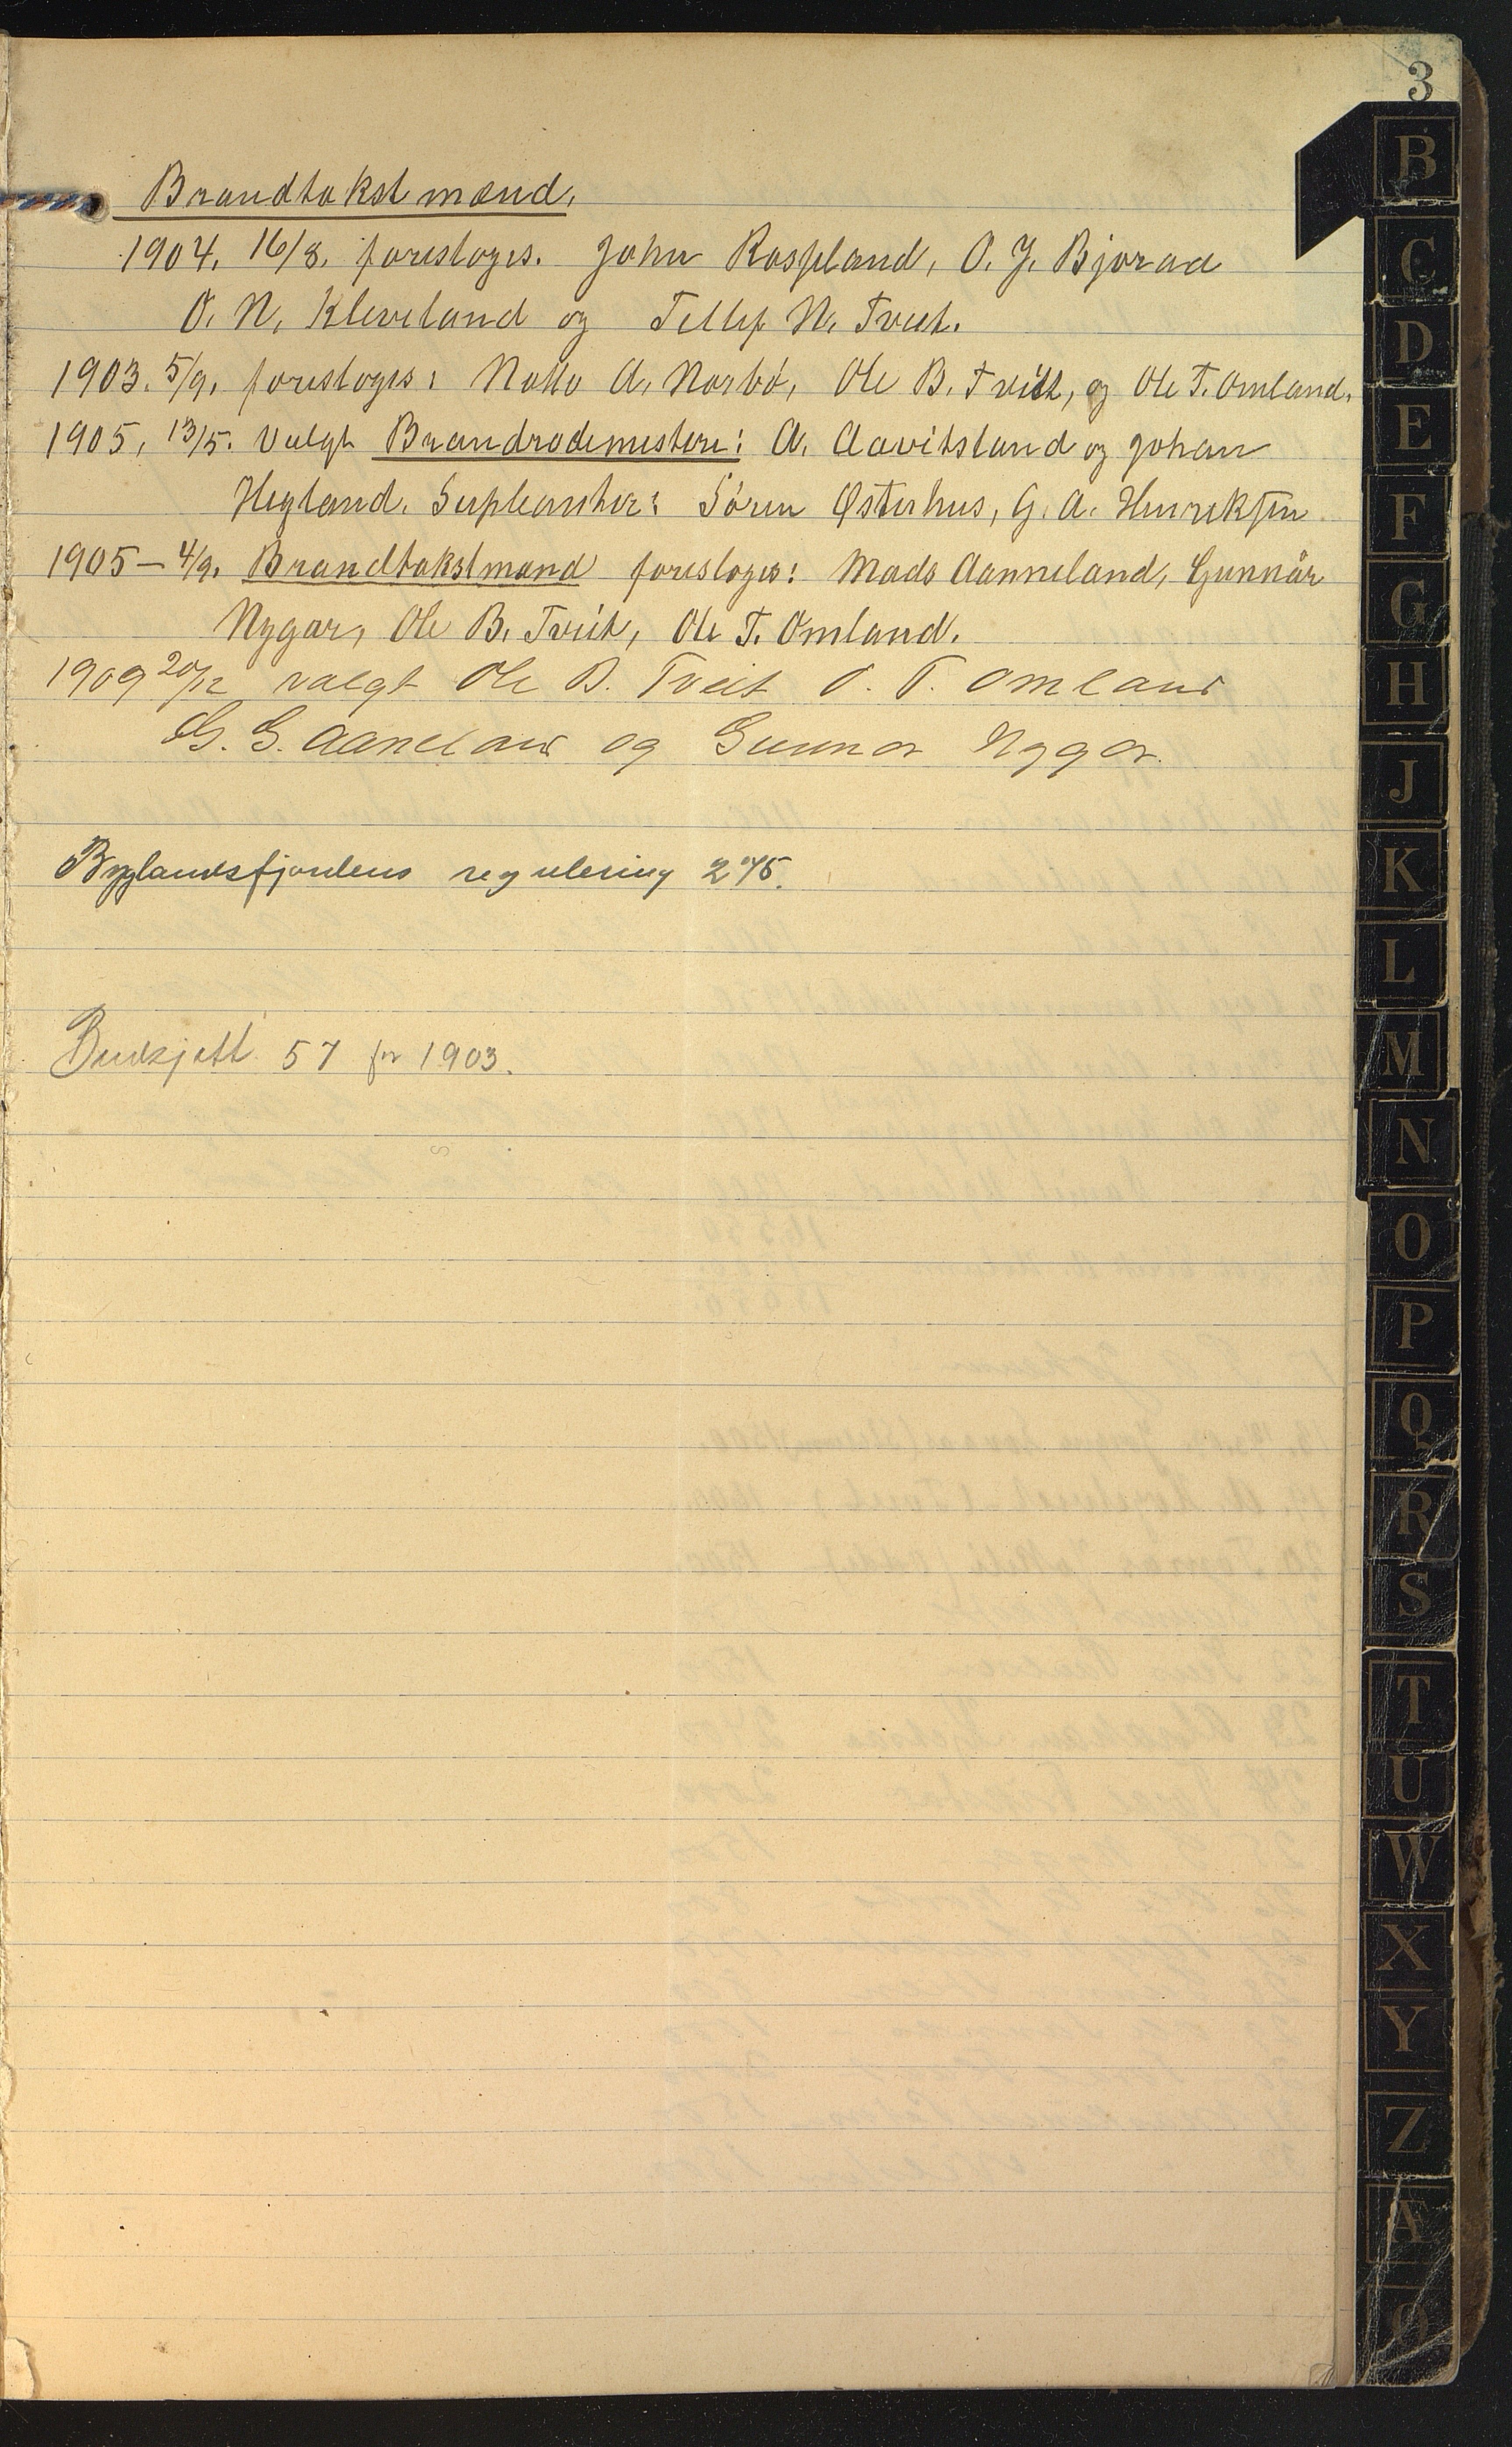 3
Brandtakstmænd.
1904. 16/8. foresloges. John Rosseland, O. J. Bjoraa
O. N. Kleveland og Tellef N. Tveit.
1903. 5/9. foresloges: Notto A. Norbö, Ole B. Tveit, og Ole T. Omland.
1905, 13/5. Valgt Brandrodemestere: A. Aavitsland og Johan
Hegland. Supleanter: Sören Østerhus, G. A. Henriksen
1905 – 4/9. Brandtakstmænd foresloges: Mads Aanneland, Gunnar
Nygar, Ole B. Tveit, Ole T. Omland.
1909 20/12 valgt Ole B. Tveit O. T. Omland
G. G. Aaneland og Gunnar Nygar.
Byglandsfjordens regulering 275.
Budsjett 57 for 1903.
B
C
D
E
F
G
H
J
K
L
M
N
O
P
Q
R
S
T
U
W
X
Y
Z
Æ
Ø